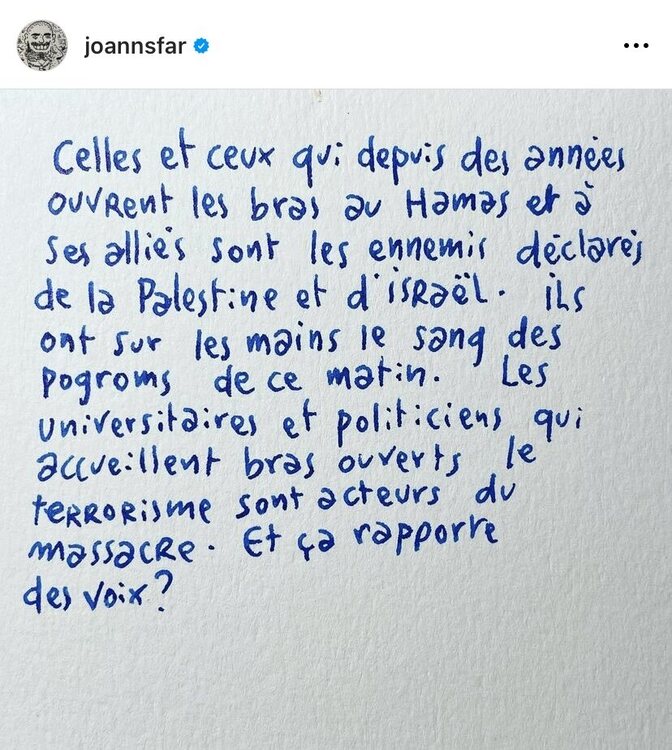 joannsfar
Celles et ceux qui depuis des années
ouvrent les bras au Hamas et à
ses alliés sont les ennemis déclarés
de la Palestine et d'israël. ils
ont sur les mains le sang des
pogroms de ce matin. Les
universitaires et politiciens qui
accueillent bras ouverts le
terrorisme sont acteurs du
massacre. Et ça rapporte
des voix?